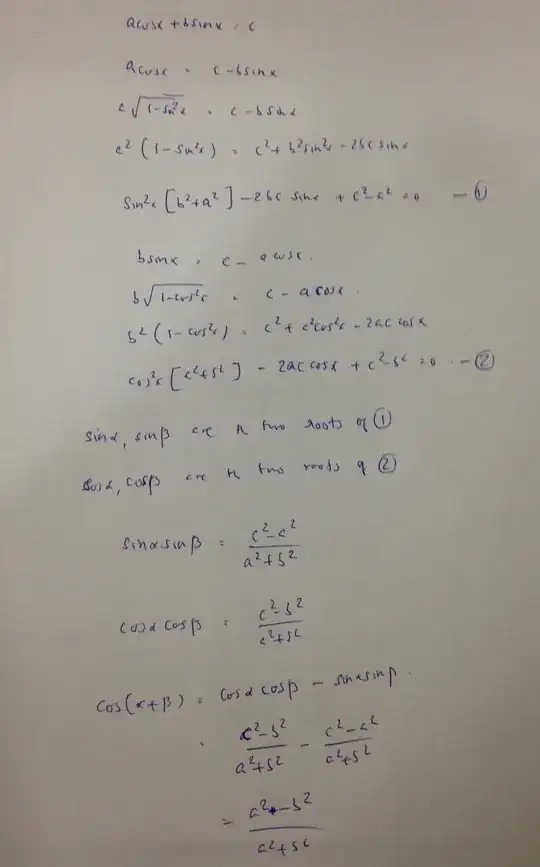 acosx + bsinx = c
acosx = c - bsinx
a√(1-sin²x) = c - bsinx
a² (1 - sin²x) = c² + b²sin²x - 2bc sinx
sin²x [b²+a²] - 2bc sinx + c²-a² = 0 - ①
bsinx = c - acosx.
b√(1-cos²x) = c - acosx.
b² (1 - cos²x) = c² + a²cos²x - 2ac cosx
cos²x [a²+b²] - 2ac cosx + c²-b² = 0 - ②
sinα, sinβ are the two roots of ①
cosα, cosβ are the two roots of ②
sinα sinβ = (c²-a²)/(a²+b²)
cosα cosβ = (c²-b²)/(a²+b²)
cos(α+β) = cosα cosβ - sinα sinβ.
= (c²-b²)/(a²+b²) - (c²-a²)/(a²+b²)
= (a²-b²)/(a²+b²)